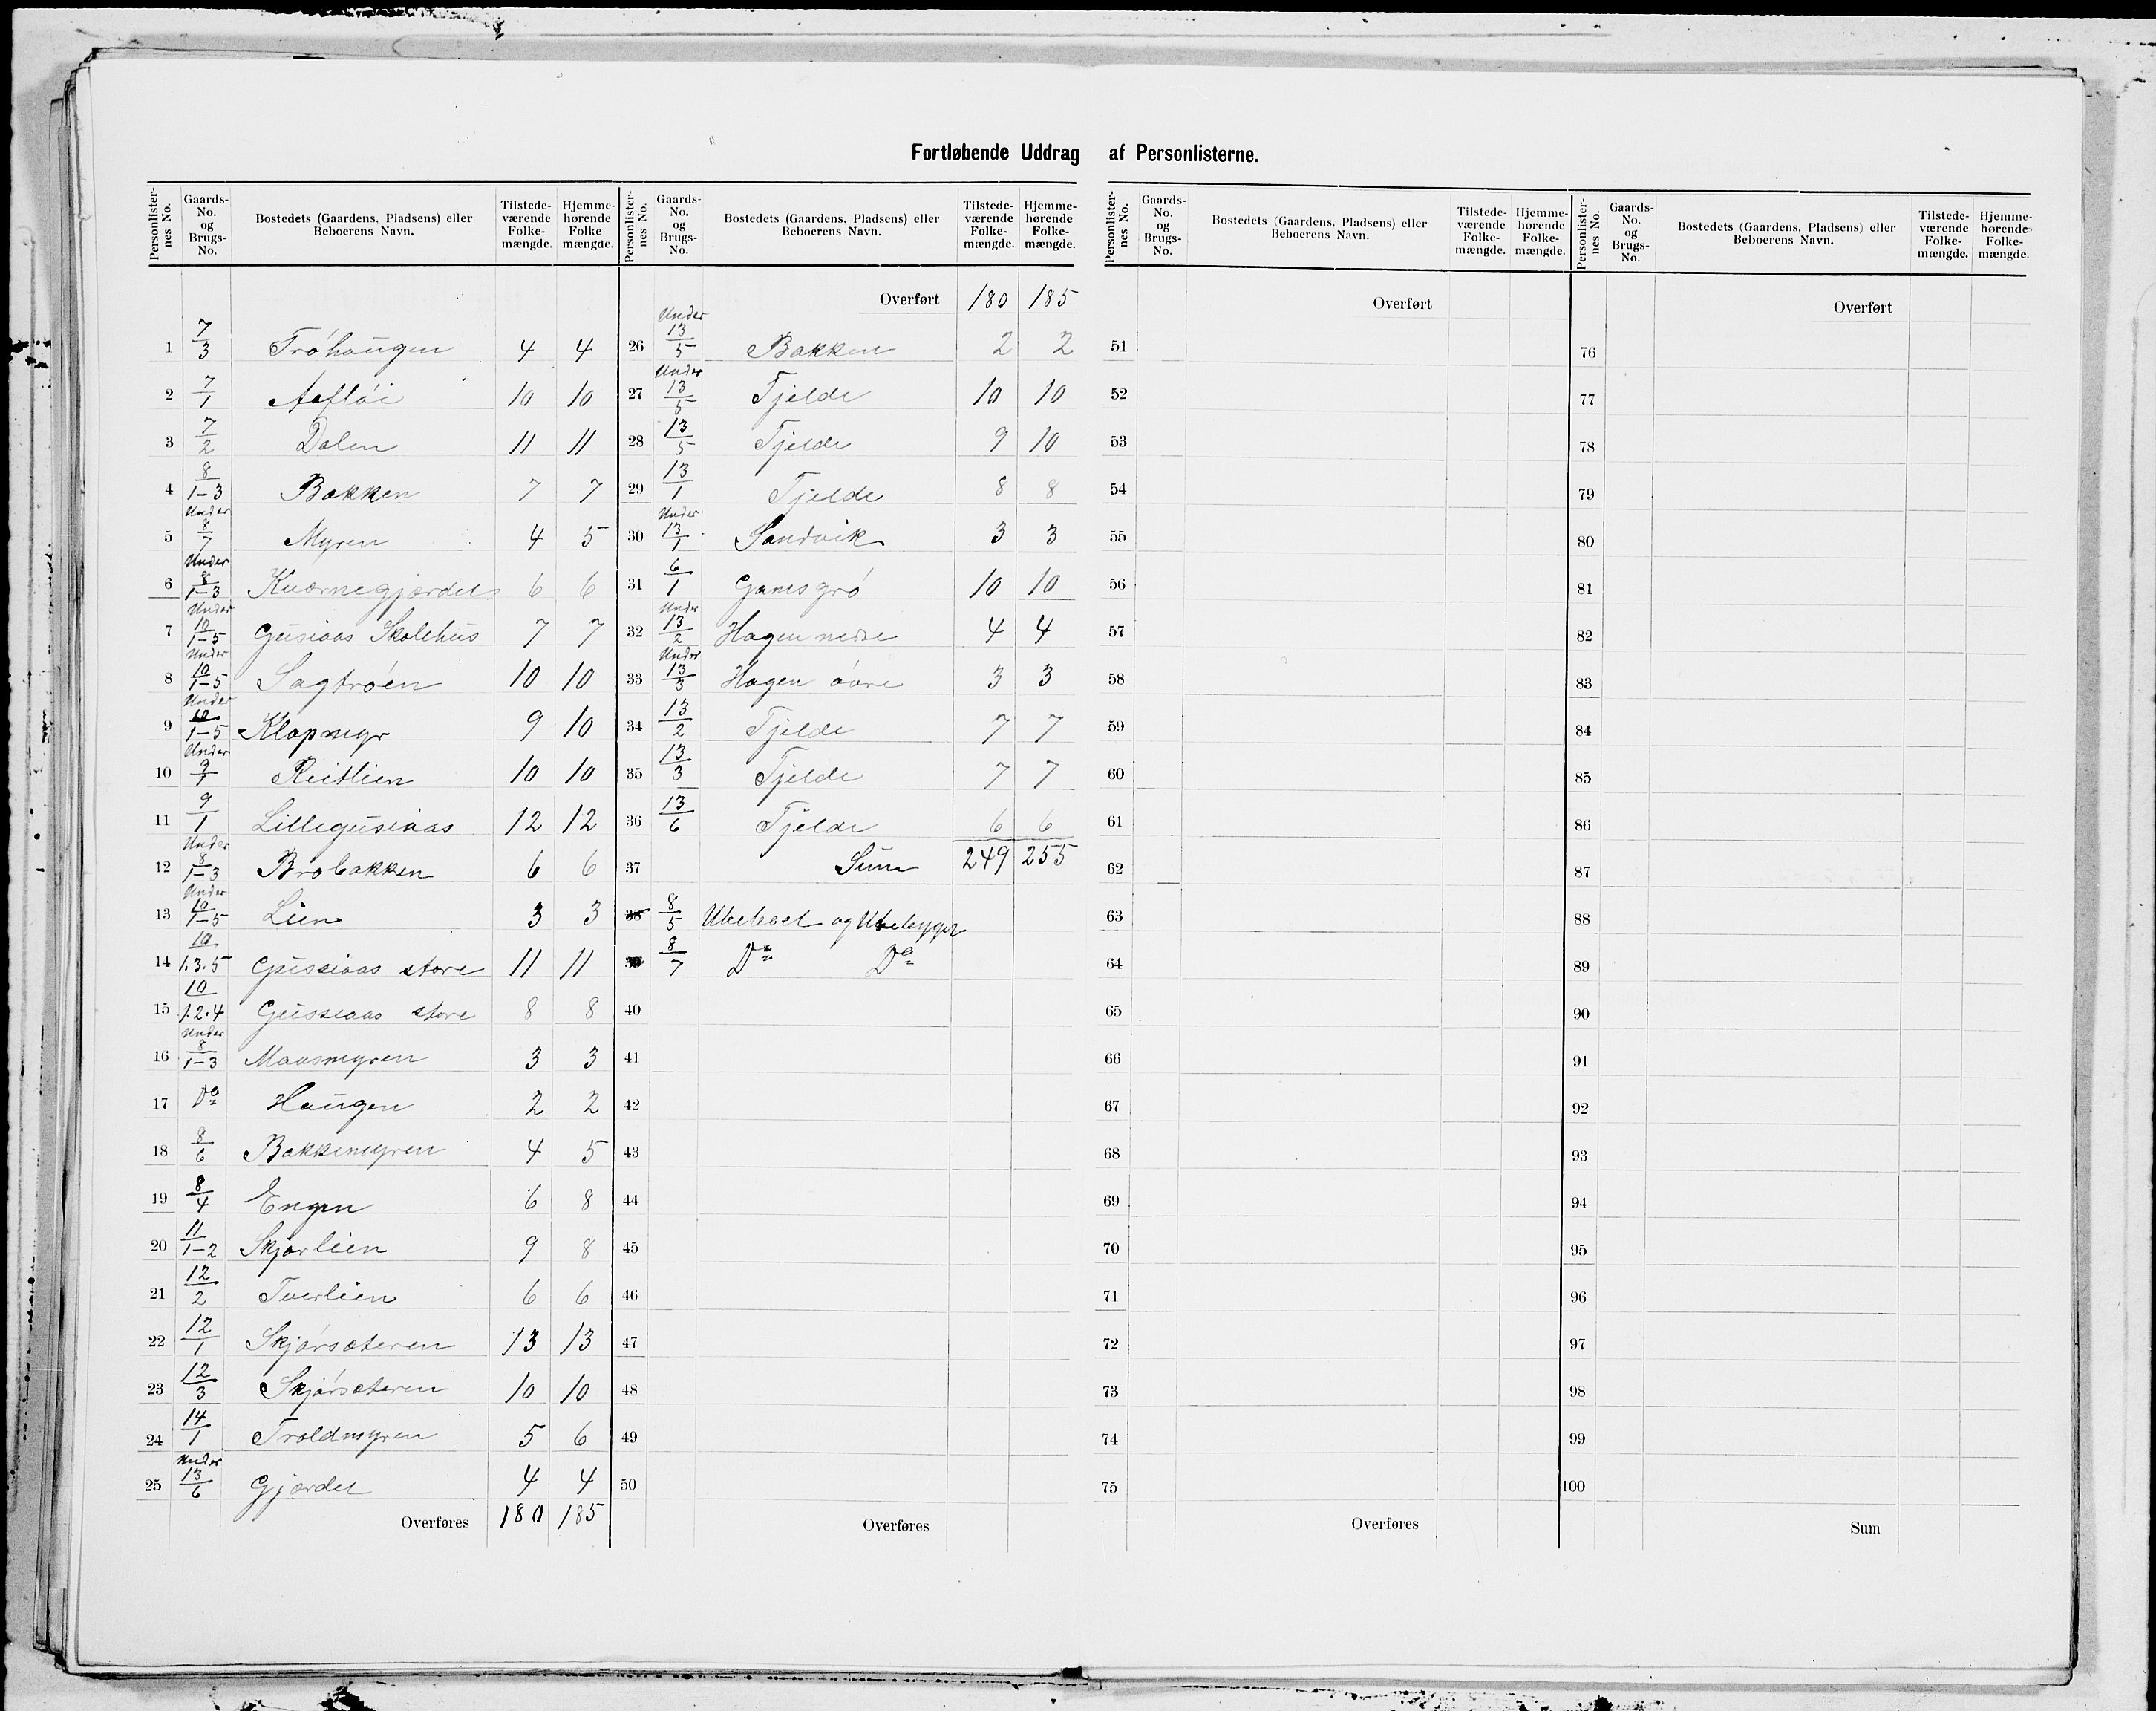 Fortløbende Uddrag af Personlisterne.
Personlisternes No. Gaards-No. og Brugs-No. Bostedets (Gaardens, Pladsens) eller Beboerens Navn. Tilstedeværende Folkemængde. Hjemmehørende Folkemængde.
1 7/3 Tróhaugen 4 4
2 7/1 10 10
3 7/2 Dalen 11 11
4 8/1-3 Bakken 7 7
5 Under 8/7 Myren 4 5
6 Under 8/1-3 Kværnegjærdet 6 6
7 Under 10/1-5 Gusiaas Skolehus 7 7
8 Under 10/1-5 Sagtróen 10 10
9 Under 10/1-5 Klapmyr 9 10
10 Under 9/1 Reitlien 10 10
11 9/1 Lillegusiaas 12 12
12 Under 8/1-3 Brobakken 6 6
13 Under 10/1-5 Lien 3 3
14 10/1.3.5 Gusiaas store 11 11
15 10/1.2.4 Gussiaas store 8 8
16 Under 8/1-3 Maasmyren 3 3
17 Do Haugen 2 2
18 8/6 Bakkemyren 4 5
19 8/4 Engen 6 8
20 11/1-2 Skjørlien 9 8
21 12/2 Tverlien 6 6
22 12/1 Skjórsæteren 13 13
23 12/3 Skjórsæteren 10 10
24 14/1 Troldmyren 5 6
25 Under 13/6 Gjærdet 4 4
Overføres 180 185
Personlisternes No. Gaards-No. og Brugs-No. Bostedets (Gaardens, Pladsens) eller Beboerens Navn. Tilstedeværende Folkemængde. Hjemmehørende Folkemængde.
Overført 180 185
26 Under 13/5 Bakken 2 2
27 Under 13/5 Tjelde 10 10
28 13/5 Tjelde 9 10
29 13/1 Tjelde 8 8
30 Under 13/1 Sandvik 3 3
31 6/1 Gamsgró 10 10
32 Under 13/2 Hagen nedre 4 4
33 Under 13/3 Hagen óvre 3 3
34 13/2 Tjelde 7 7
35 13/3 Tjelde 7 7
36 13/6 Tjelde 6 6
37 Sum 249 255
38 8/5 Ubeboet og Ubebygget
39 8/7 Do Do
40
41
42
43
44
45
46
47
48
49
50
Overføres
Personlisternes No. Gaards-No. og Brugs-No. Bostedets (Gaardens, Pladsens) eller Beboerens Navn. Tilstedeværende Folkemængde. Hjemmehørende Folkemængde.
Overført
51
52
53
54
55
56
57
58
59
60
61
62
63
64
65
66
67
68
69
70
71
72
73
74
75
Overføres
Personlisternes No. Gaards-No. og Brugs-No. Bostedets (Gaardens, Pladsens) eller Beboerens Navn. Tilstedeværende Folkemængde. Hjemmehørende Folkemængde.
Overført
76
77
78
79
80
81
82
83
84
85
86
87
88
89
90
91
92
93
94
95
96
97
98
99
100
Sum